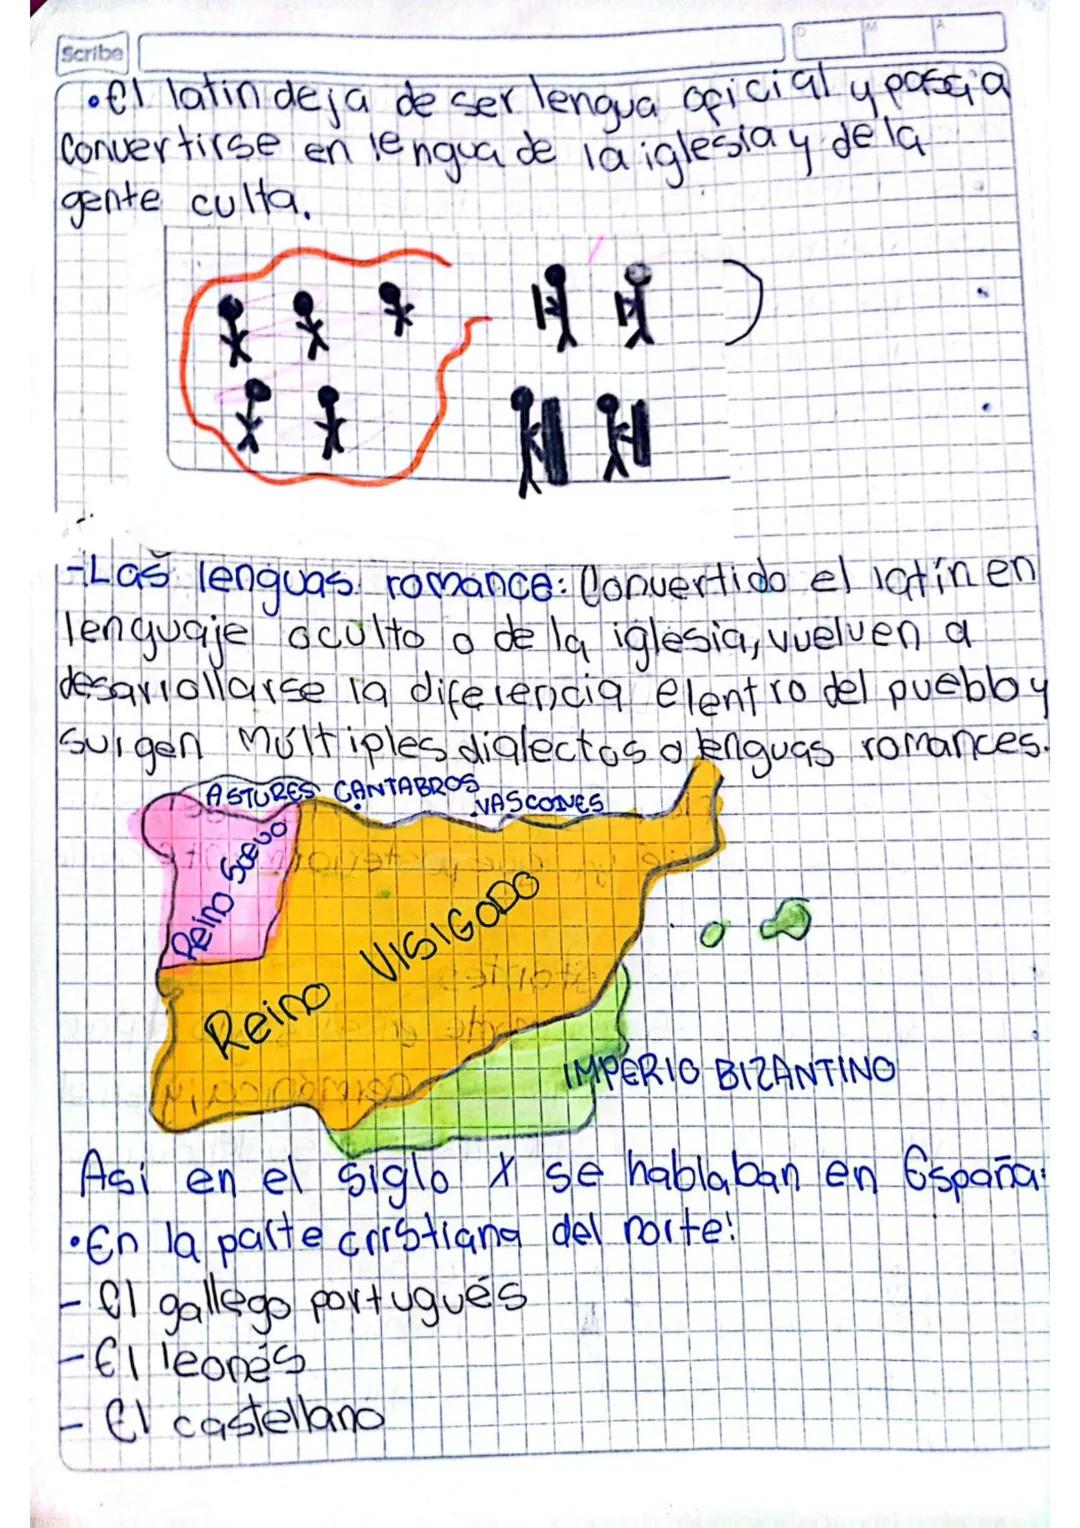 Scribe
D M A
•El latin deja de ser lengua oficial y pasa a
Convertirse en lengua de la iglesia y de la
gente culta.
-Las lenguas romance: Convertido el latín en
lenguaje oculto o de la iglesia, vuelven a
desarrollarse la diferencia elentro del pueblo y
surgen múltiples dialectos o lenguas romances.
ASTURES CANTABROS VASCONES
Reino SUEVO
Reino VISIGODO
IMPERIO BIZANTINO
Así en el siglo X se hablaban en España:
•En la parte cristiana del norte:
- El gallego portugués
- El leonés
- El castellano